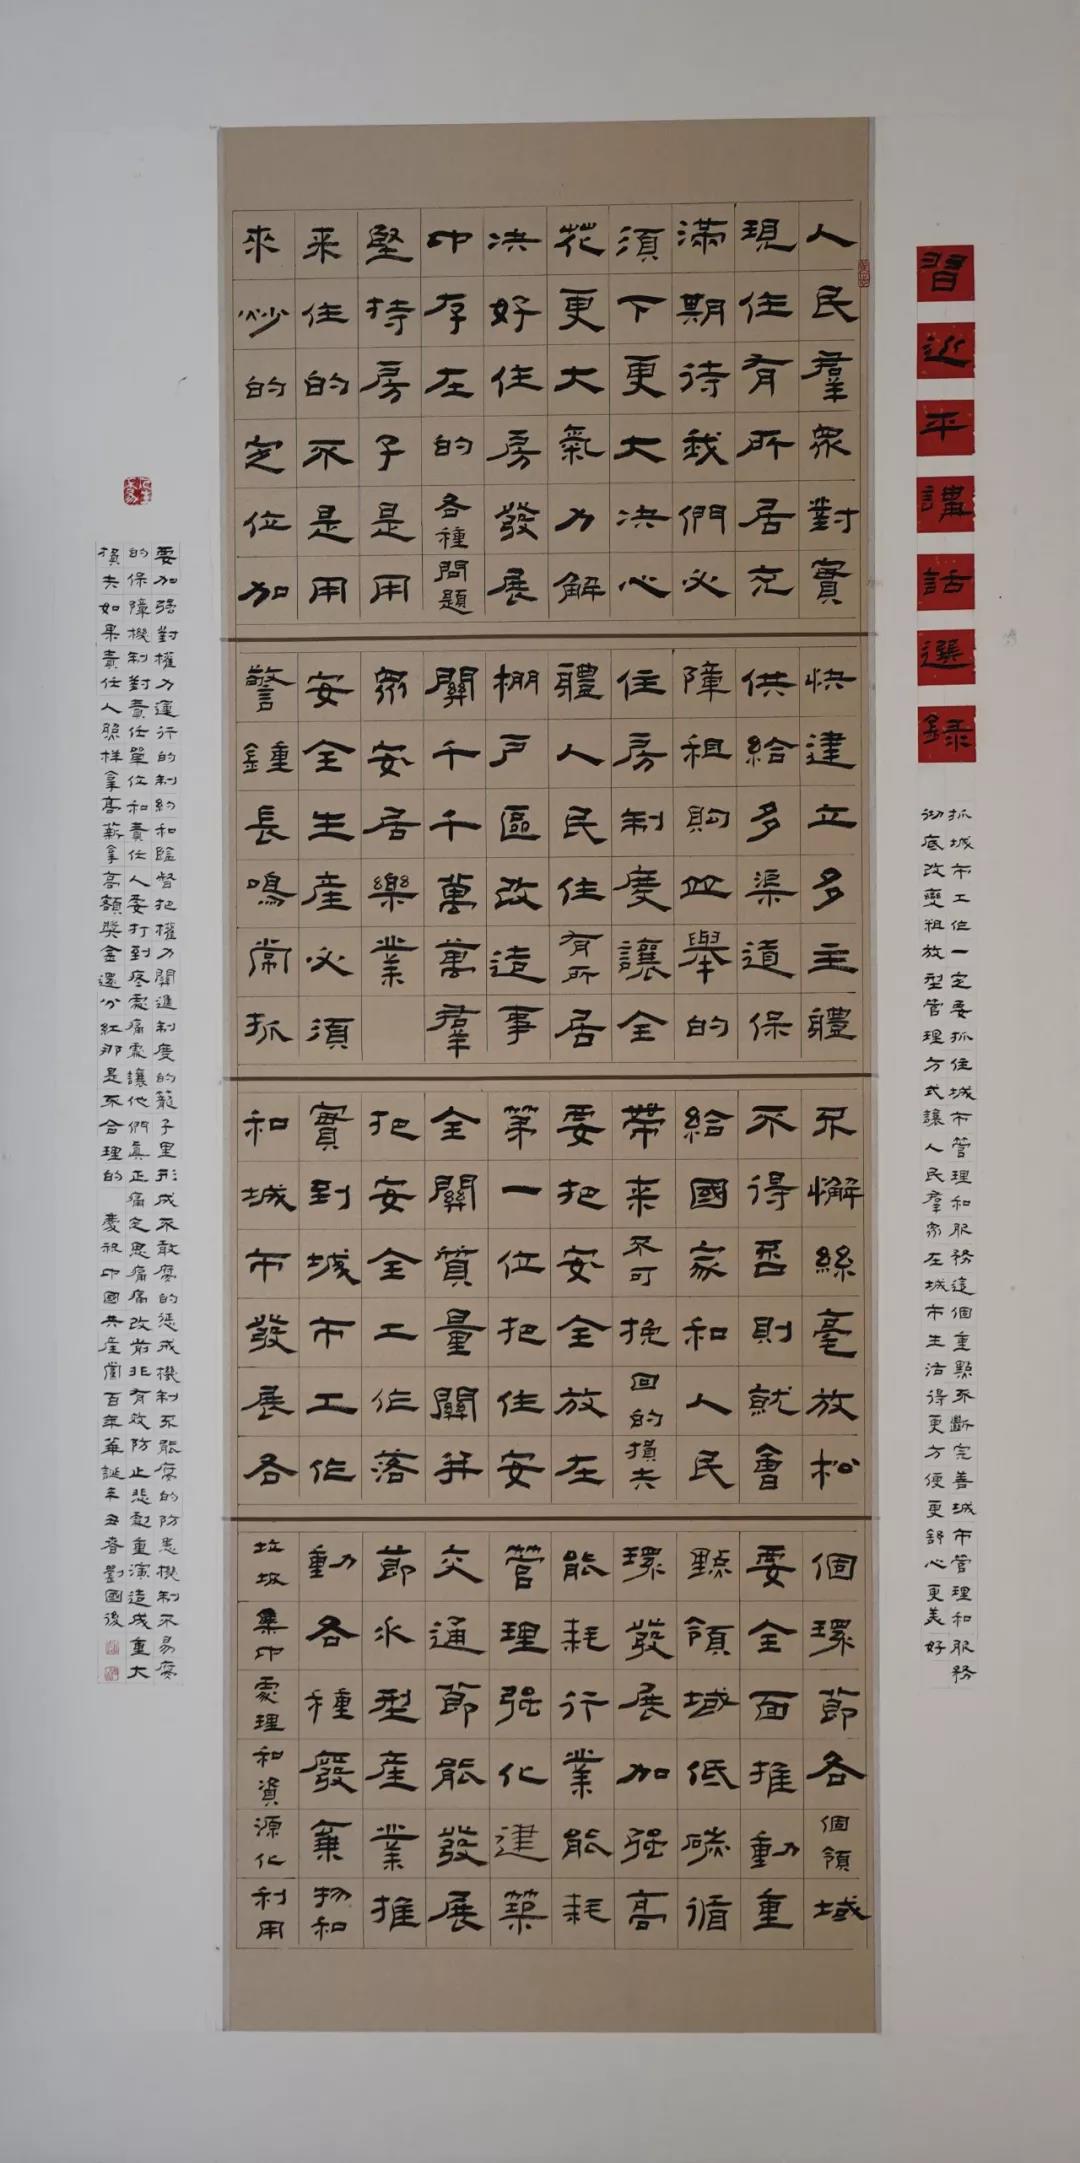 習近平講話選録
抓城市工作一定要抓住城市管理和服務這個重點不斷完善城市管理和服務
彻底改變粗放型管理方式讓人民羣眾在城市生活得更方便更舒心更美好
人民羣眾對實
現住有所居充
滿期待我們必
須下更大决心
花更大氣力解
决好住房發展
中存在的各種問題
堅持房子是用
来住的不是用
來炒的定位加
快建立多主體
供給多渠道保
障租購並舉的
住房制度讓全
體人民住有所居
棚戶區改造事
關千千萬萬羣
眾安居樂業
安全生産必須
警鐘長鳴常抓
不懈絲毫放松
不得否則就會
給國家和人民
帶来不可挽回的損失
要把安全放在
第一位把住安
全關質量關并
把安全工作落
實到城市工作
和城市發展各
個環節各個領域
要全面推動重
點領域低碳循
環發展加强高
能耗行業能耗
管理强化建築
交通節能發展
節水型産業推
動各種廢棄物和
垃圾集中處理和資源化利用
要加强對權力運行的制約和監督把權力關進制度的籠子里形成不敢腐的惩戒機制不能腐的防范機制不易腐
的保障機制對責任單位和責任人要打到疼處痛處讓他們真正痛定思痛痛改前非有效防止悲劇重演造成重大
損失如果責任人照样拿高薪拿高額獎金還分紅那是不合理的 慶祝中國共産黨百年華誕辛丑春劉國後